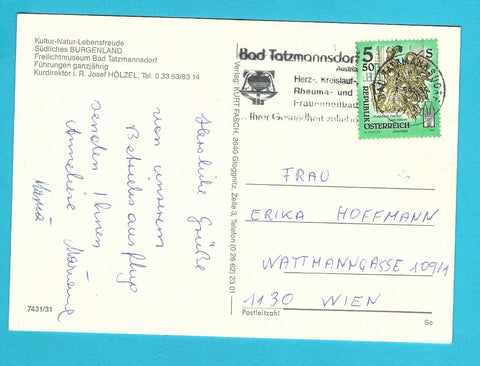 Kultur-Natur-Lebensfreude
Südliches BURGENLAND
Freilichtmuseum Bad Tatzmannsdorf
Führungen ganzjährig
Kurdirektor i. R. Josef HÖLZEL, Tel. 0 33 53/83 14
Herzliche Grüße
von unserem
Betriebsausflug
senden Ihnen
Anneliese Marianne
Maria
7431/31
Verlag: KURT FASCH, 2640 Gloggnitz, Zeile 3, Telefon (0 26 62) 23 01
Bad Tatzmannsdorf
Austria
Herz-, Kreislauf-,
Rheuma- und
Frauenheilbad
Ihrer Gesundheit zuliebe
BAD TATZMANNSDORF
5 50 S
REPUBLIK
ÖSTERREICH
FRAU
ERIKA HOFFMANN
WATTMANNGASSE 109/1
1130 WIEN
Postleitzahl
So